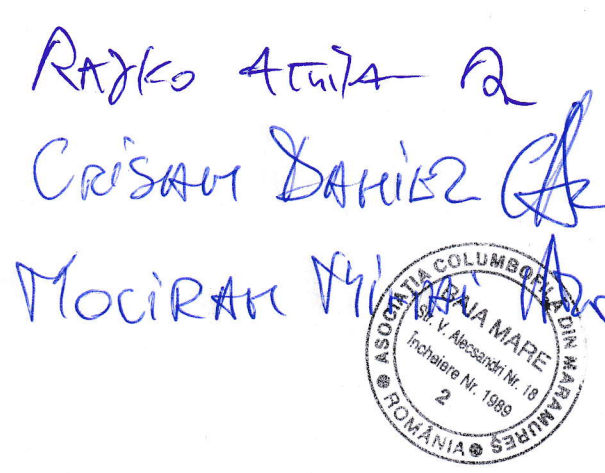 RAJKO Attila
CRISAN DANIEL
MOCIRAN MIHAI
ASOCIAȚIA COLUMBOFILĂ DIN MARAMUREȘ
ROMÂNIA
BAIA MARE
str. V. Alecsandri Nr. 18
Încheiere Nr. 1989
2